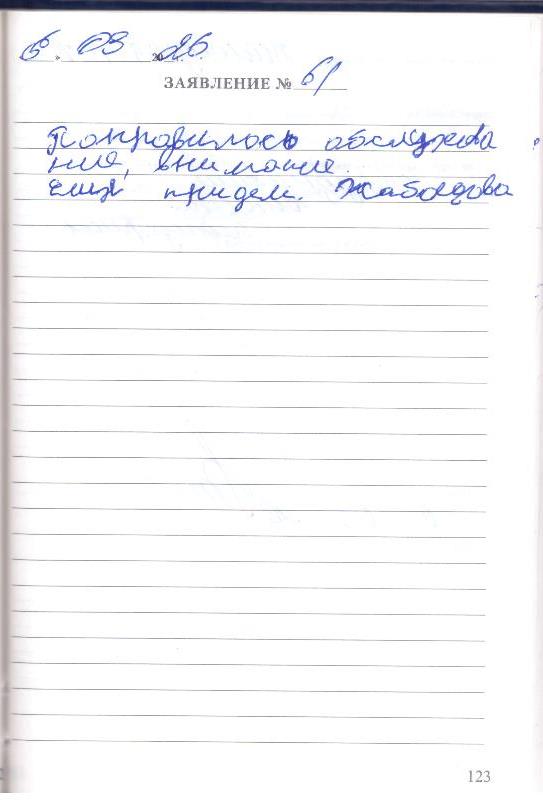 6 » 03 2026
ЗАЯВЛЕНИЕ № 61
Понравилось обслужива
ние, внимание.
ещё придем. Жабоедова
123